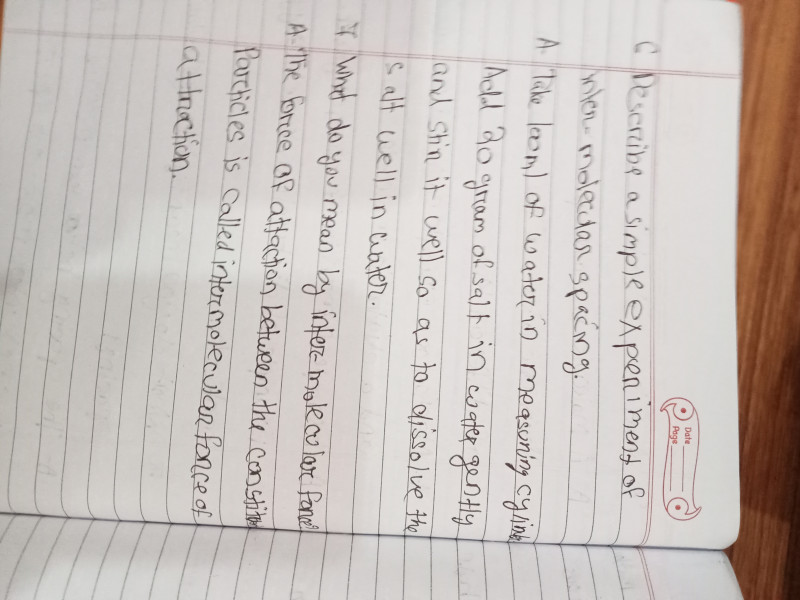 Date
Page
6 Describe a simple experiment of
inter-molecular spacing.
A Take 100ml of water in measuring cylinder
Add 20 gram of salt in water gently
and stir it well so as to dissolve the
salt well in water.
7 What do you mean by inter-molecular force?
A. The force of attaction between the constitute
Particles is called intermolecular force of
attraction.